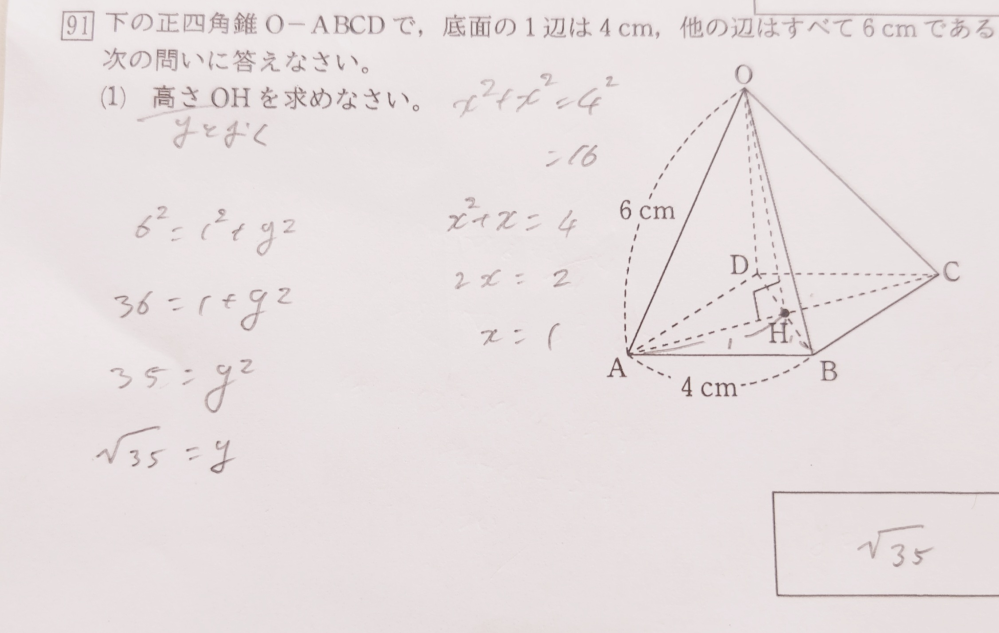 91 下の正四角錐O－ABCDで，底面の1辺は4cm，他の辺はすべて6cmである
次の問いに答えなさい。
(1) 高さOHを求めなさい。
yとおく
x²+x²=4²
=16
x²+x=4
2x=2
x=1
6²=1²+y²
36=1+y²
35=y²
√35=y
O
6 cm
D
C
H
1
A
B
4 cm
√35